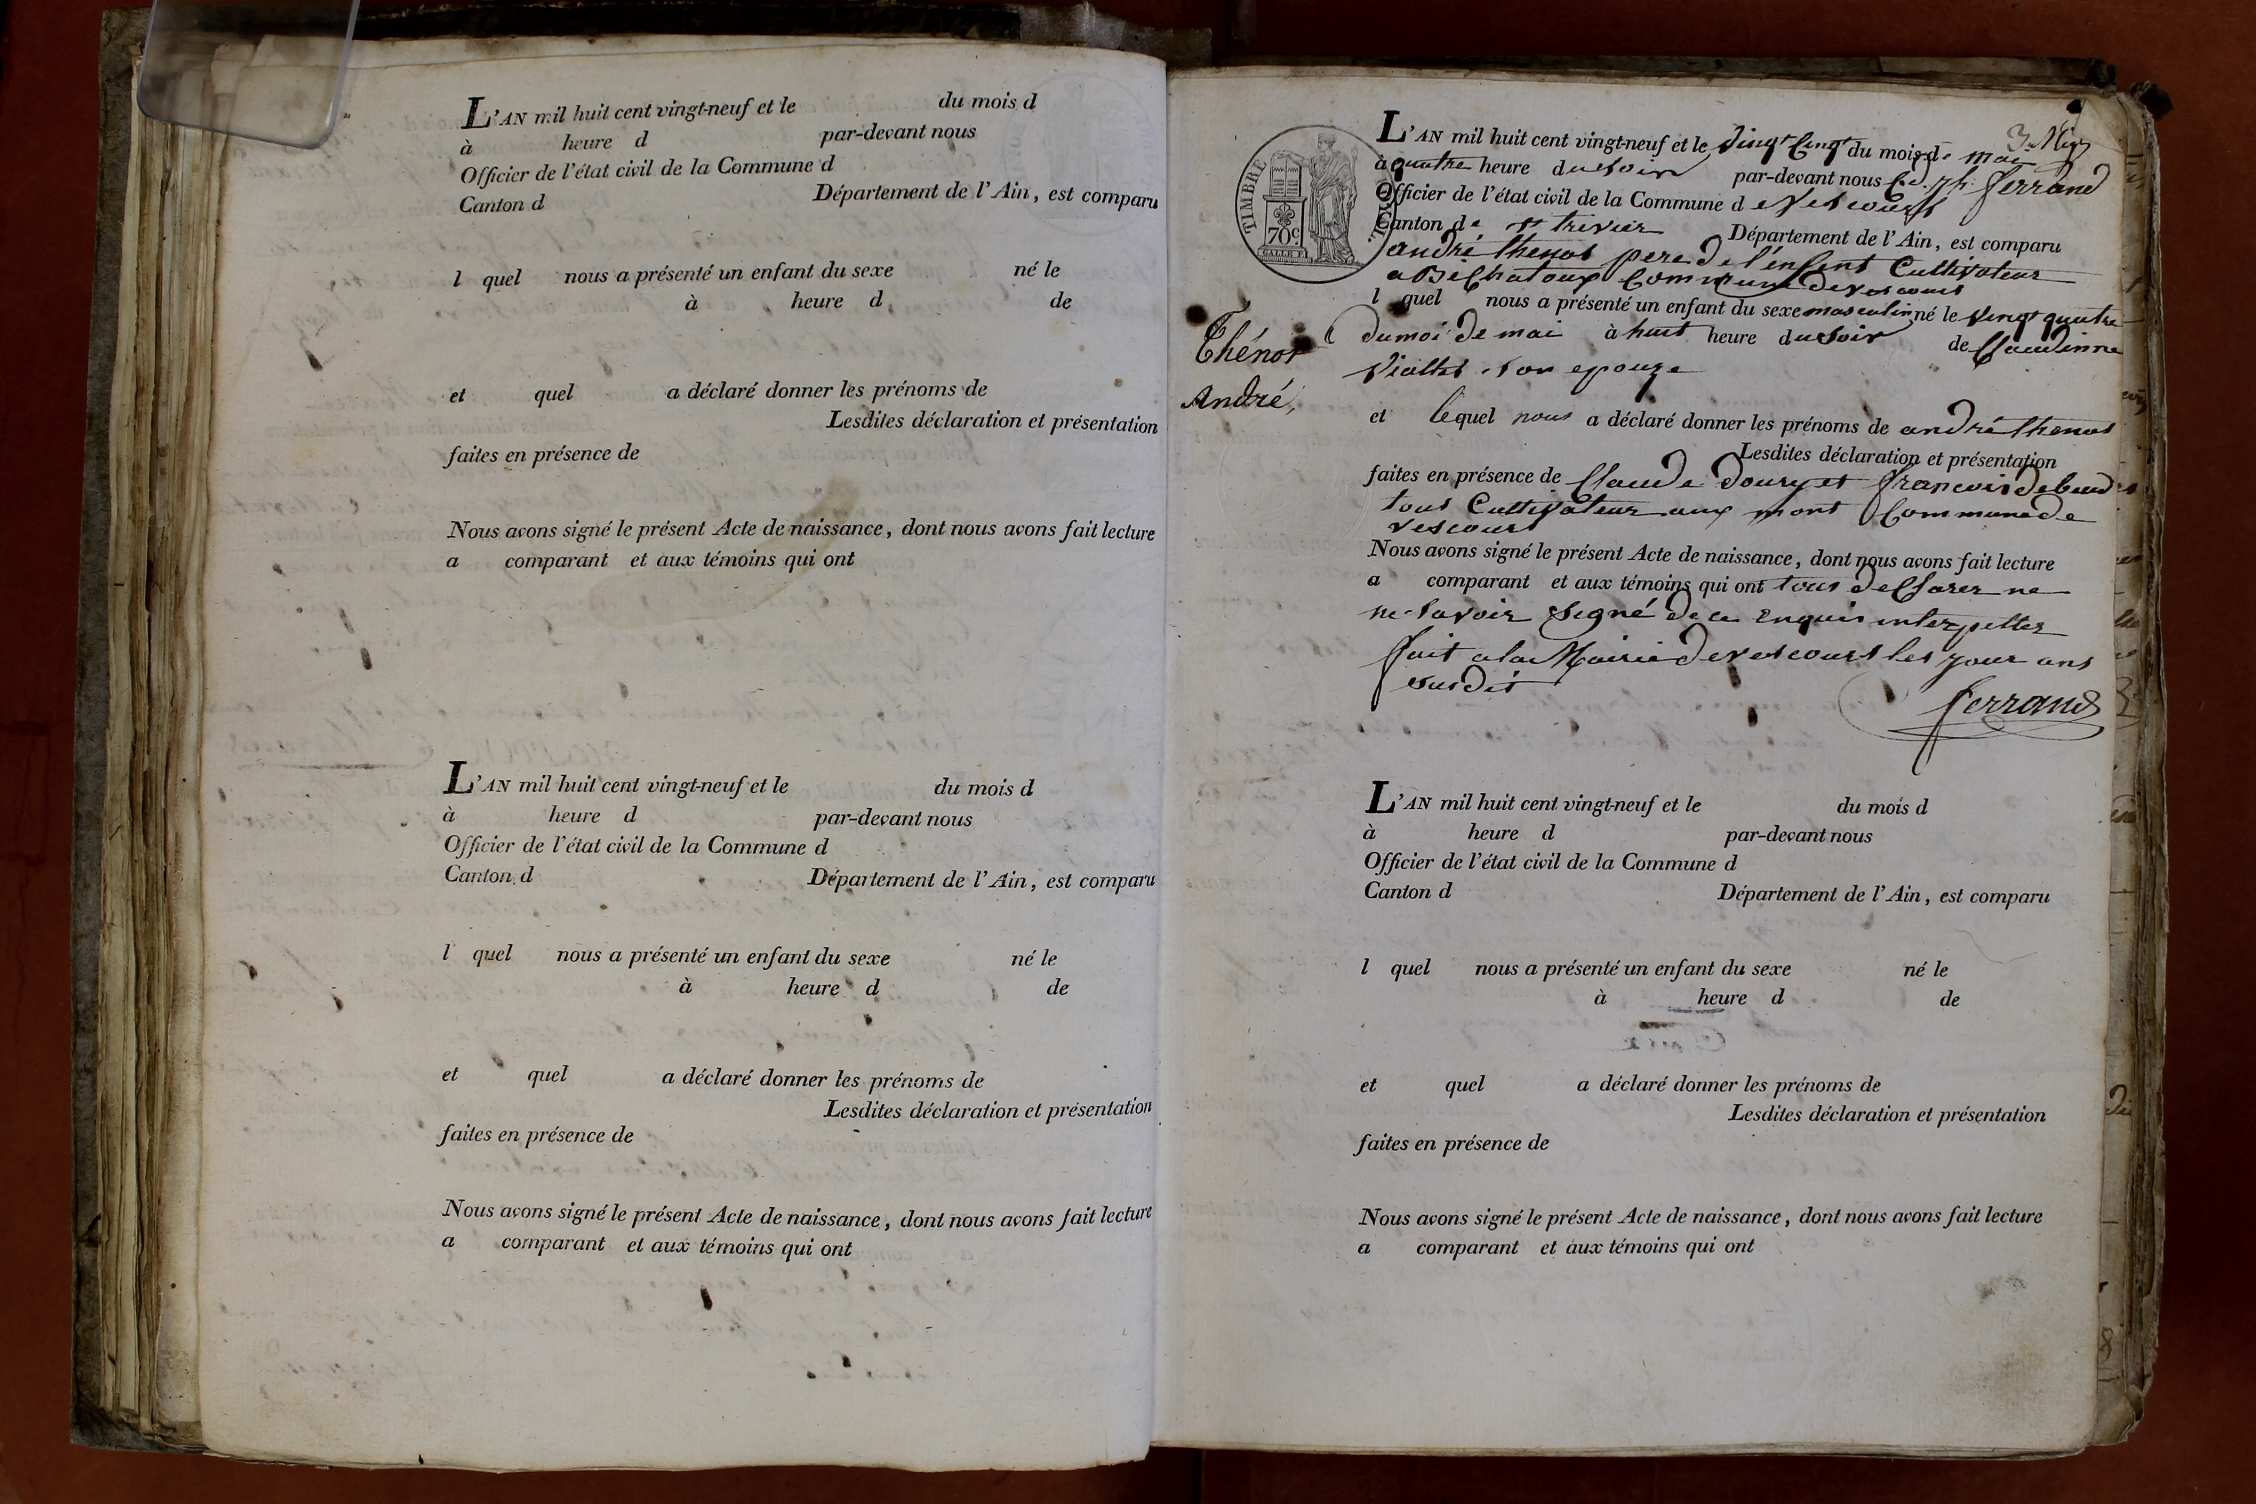 L'AN mil huit cent vingt-neuf et le du mois d
à heure d par-devant nous
Officier de l'état civil de la Commune d
Canton d Département de l'Ain, est comparu
l quel nous a présenté un enfant du sexe né le
à heure d de
et quel a déclaré donner les prénoms de
Lesdites déclaration et présentation
faites en présence de
Nous avons signé le présent Acte de naissance, dont nous avons fait lecture
a comparant et aux témoins qui ont
L'AN mil huit cent vingt-neuf et le du mois d
à heure d par-devant nous
Officier de l'état civil de la Commune d
Canton d Département de l'Ain, est comparu
l quel nous a présenté un enfant du sexe né le
à heure d de
et quel a déclaré donner les prénoms de
Lesdites déclaration et présentation
faites en présence de
Nous avons signé le présent Acte de naissance, dont nous avons fait lecture
a comparant et aux témoins qui ont
TIMBRE ROYAL
70c
Thénot
André,
L'AN mil huit cent vingt-neuf et le vingt Cinqt du mois de mai
à quatre heure du soir par-devant nous Cd. ph. ferrand
Officier de l'état civil de la Commune de vescours
Canton de st trivier Département de l'Ain, est comparu
andré thenot pere de l'enfent Cultivateur
a Commune de vescours
l quel nous a présenté un enfant du sexe masculin né le vingt quatre
du moi de mai à huit heure du soir de Claudinne
viallet son epouze
et lequel nous a déclaré donner les prénoms de andré thenot
Lesdites déclaration et présentation
faites en présence de Claude doury et francois
tous Cultivateur aux mont Commune de
vescours
Nous avons signé le présent Acte de naissance, dont nous avons fait lecture
a comparant et aux témoins qui ont tous declarer ne
ne savoir signé de ce enquis interpeller
fait a la Mairie de vescours les jour ans
susdit
ferrand
L'AN mil huit cent vingt-neuf et le du mois d
à heure d par-devant nous
Officier de l'état civil de la Commune d
Canton d Département de l'Ain, est comparu
l quel nous a présenté un enfant du sexe né le
à heure d de
et quel a déclaré donner les prénoms de
Lesdites déclaration et présentation
faites en présence de
Nous avons signé le présent Acte de naissance, dont nous avons fait lecture
a comparant et aux témoins qui ont